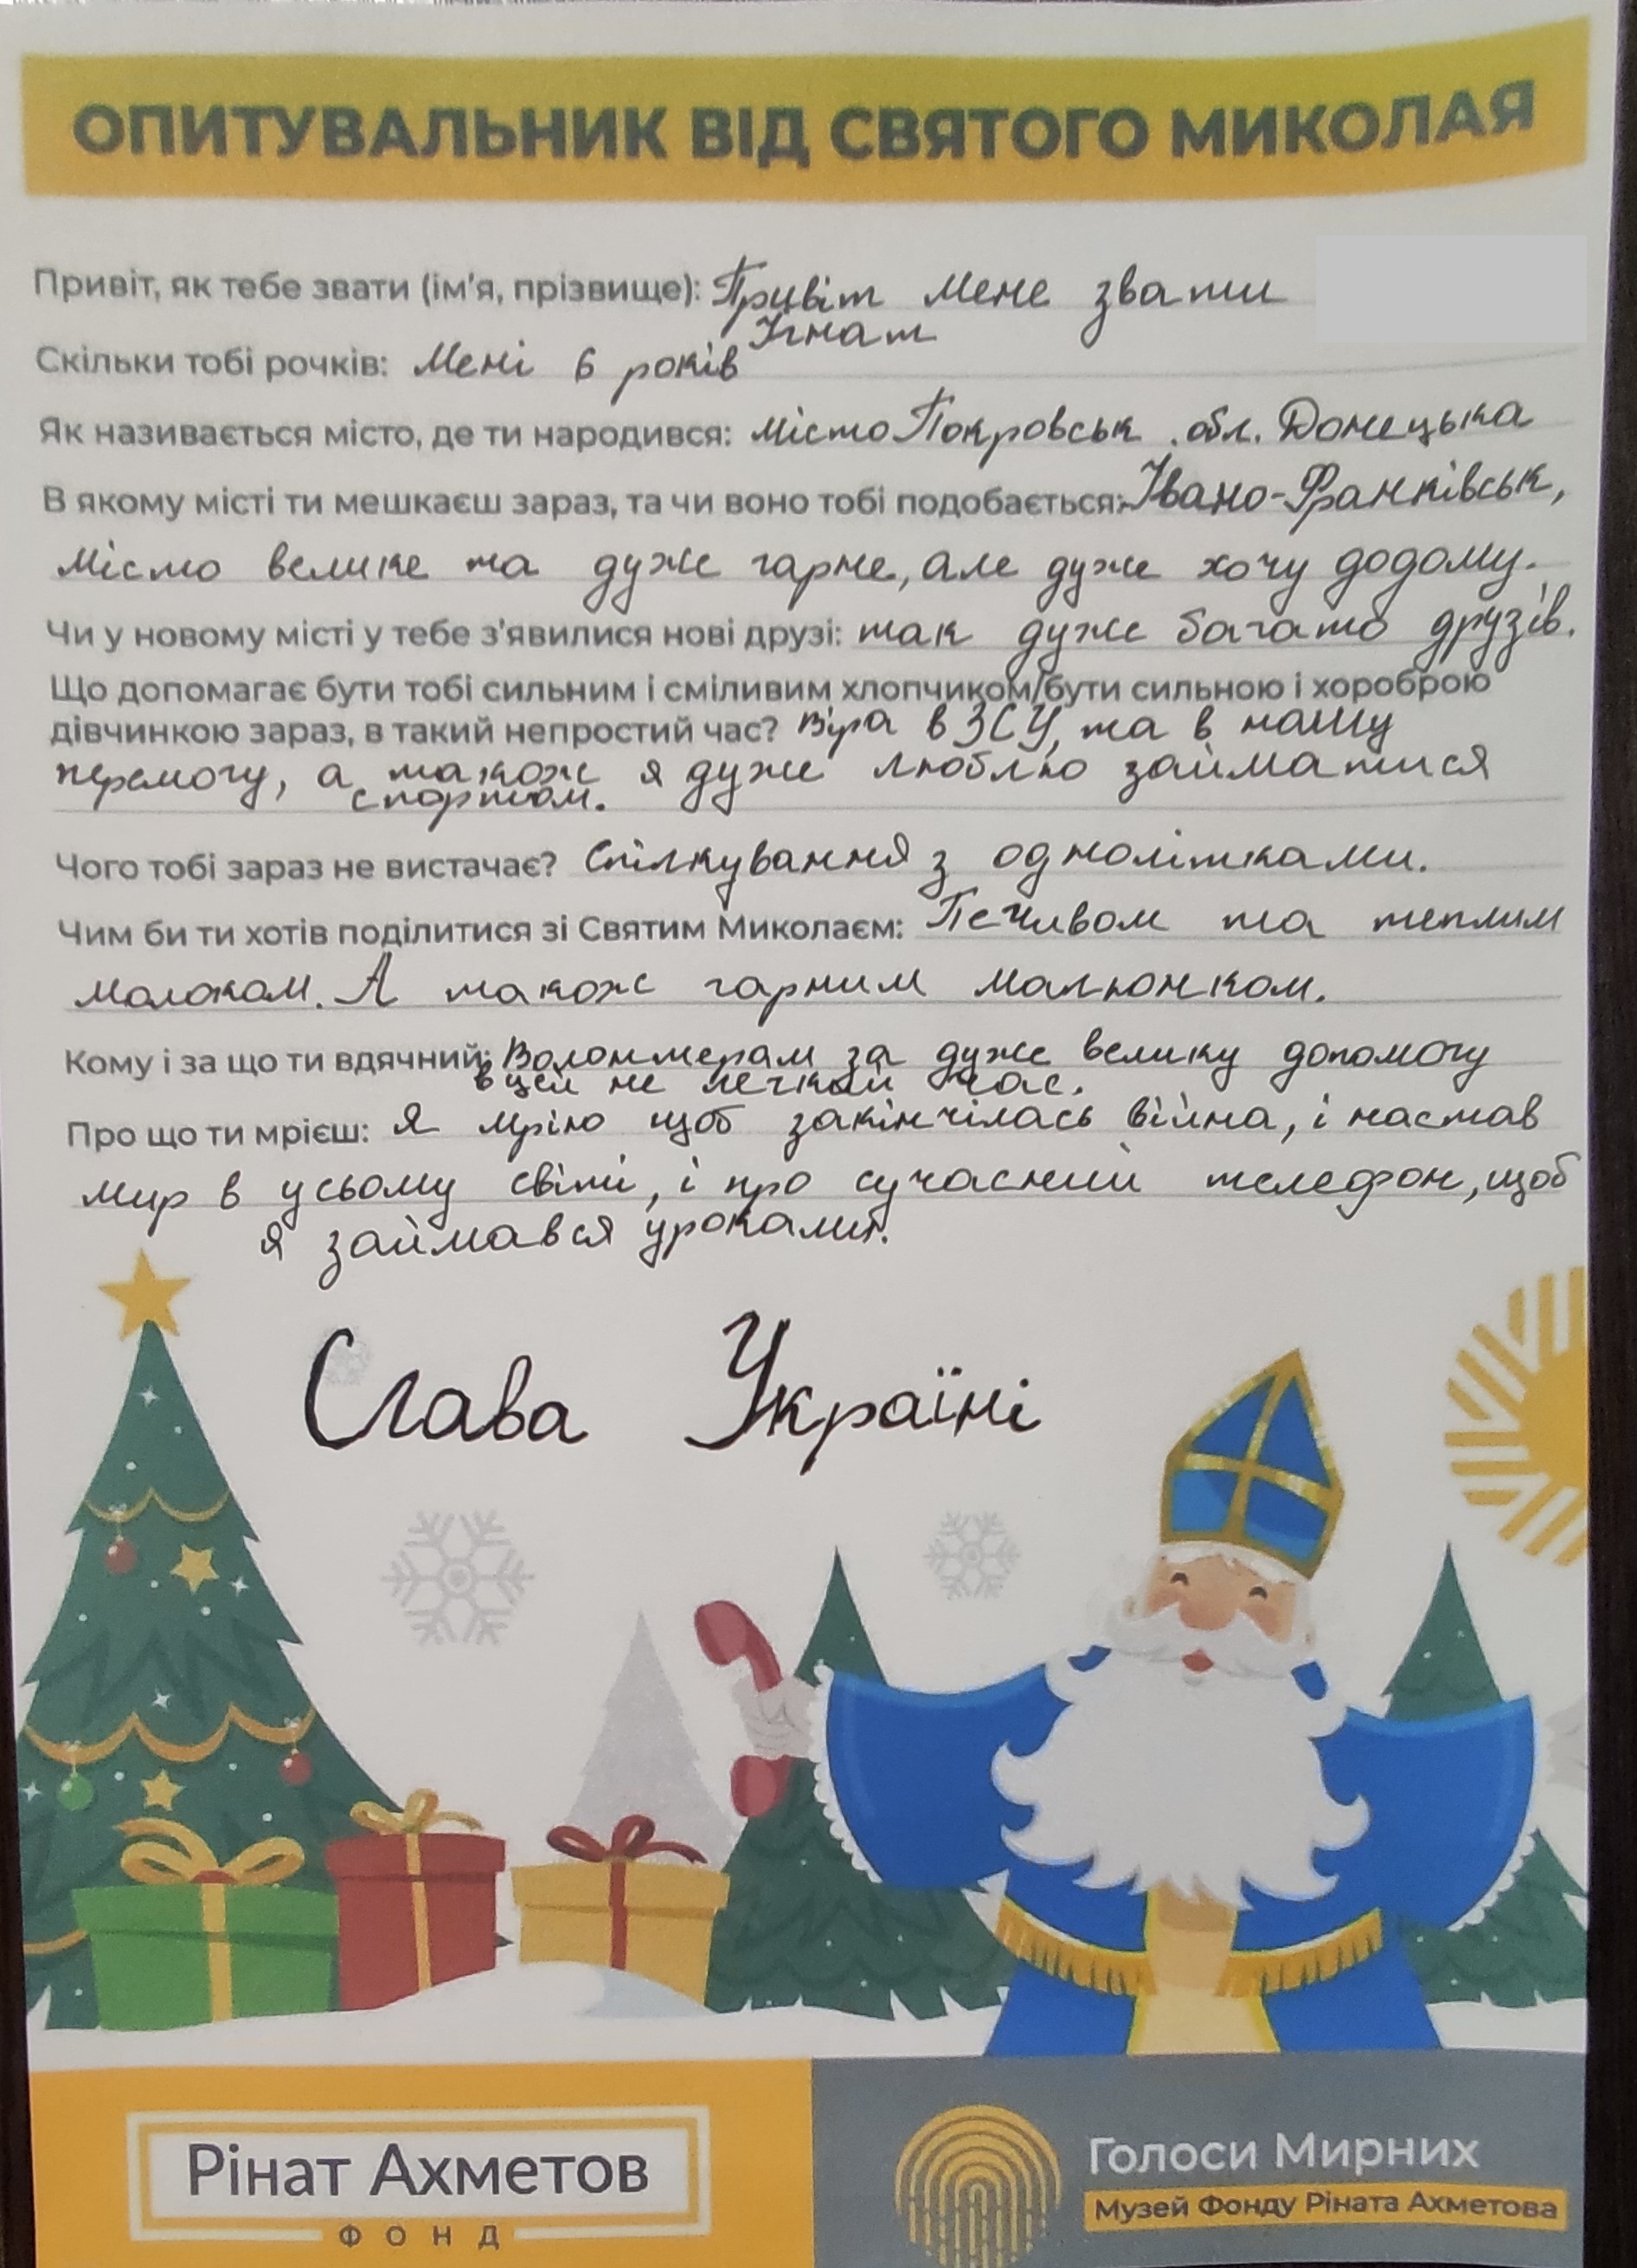 ОПИТУВАЛЬНИК ВІД СВЯТОГО МИКОЛАЯ
Привіт, як тебе звати (ім'я, прізвище): Привіт мене звати
Ігнат
Скільки тобі рочків: Мені 6 років
Як називається місто, де ти народився: місто Покровськ . обл. Донецька
В якому місті ти мешкаєш зараз, та чи воно тобі подобається: Івано-Франківськ,
місто велике та дуже гарне, але дуже хочу додому.
Чи у новому місті у тебе з'явилися нові друзі: так дуже багато друзів.
Що допомагає бути тобі сильним і сміливим хлопчиком/бути сильною і хороброю
дівчинкою зараз, в такий непростий час? Віра в ЗСУ, та в нашу
перемогу, а також я дуже люблю займатися
спортом.
Чого тобі зараз не вистачає? Спілкування з однолітками.
Чим би ти хотів поділитися зі Святим Миколаєм: Печивом та теплим
молоком. А також гарним малюнком.
Кому і за що ти вдячний: Волонтерам за дуже велику допомогу
в цей не легкий час.
Про що ти мрієш: Я мрію щоб закінчілась війна, і настав
мир в усьому світі, і про сучасний телефон, щоб
я займався уроками.
Слава Україні
Рінат Ахметов
ФОНД
Голоси Мирних
Музей Фонду Ріната Ахметова